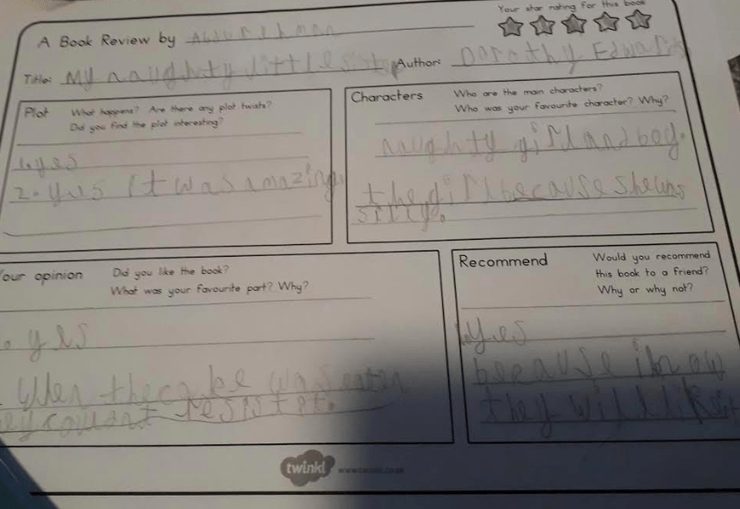 Your star rating for this book
A Book Review by Abdurrhman
Title: My naughty little Author: Dorothy Edwards
Plot
What happens? Are there any plot twists?
Did you find the plot interesting?
1. yes
2. yes it was amazing
Characters
Who are the main characters?
Who was your favourite character? Why?
naughty girl and boy.
the girl because she was
silly.
Your opinion
Did you like the book?
What was your favourite part? Why?
yes
When the cake was eatin
resist it.
Recommend
Would you recommend
this book to a friend?
Why or why not?
yes
because i know
they will like it
twinkl